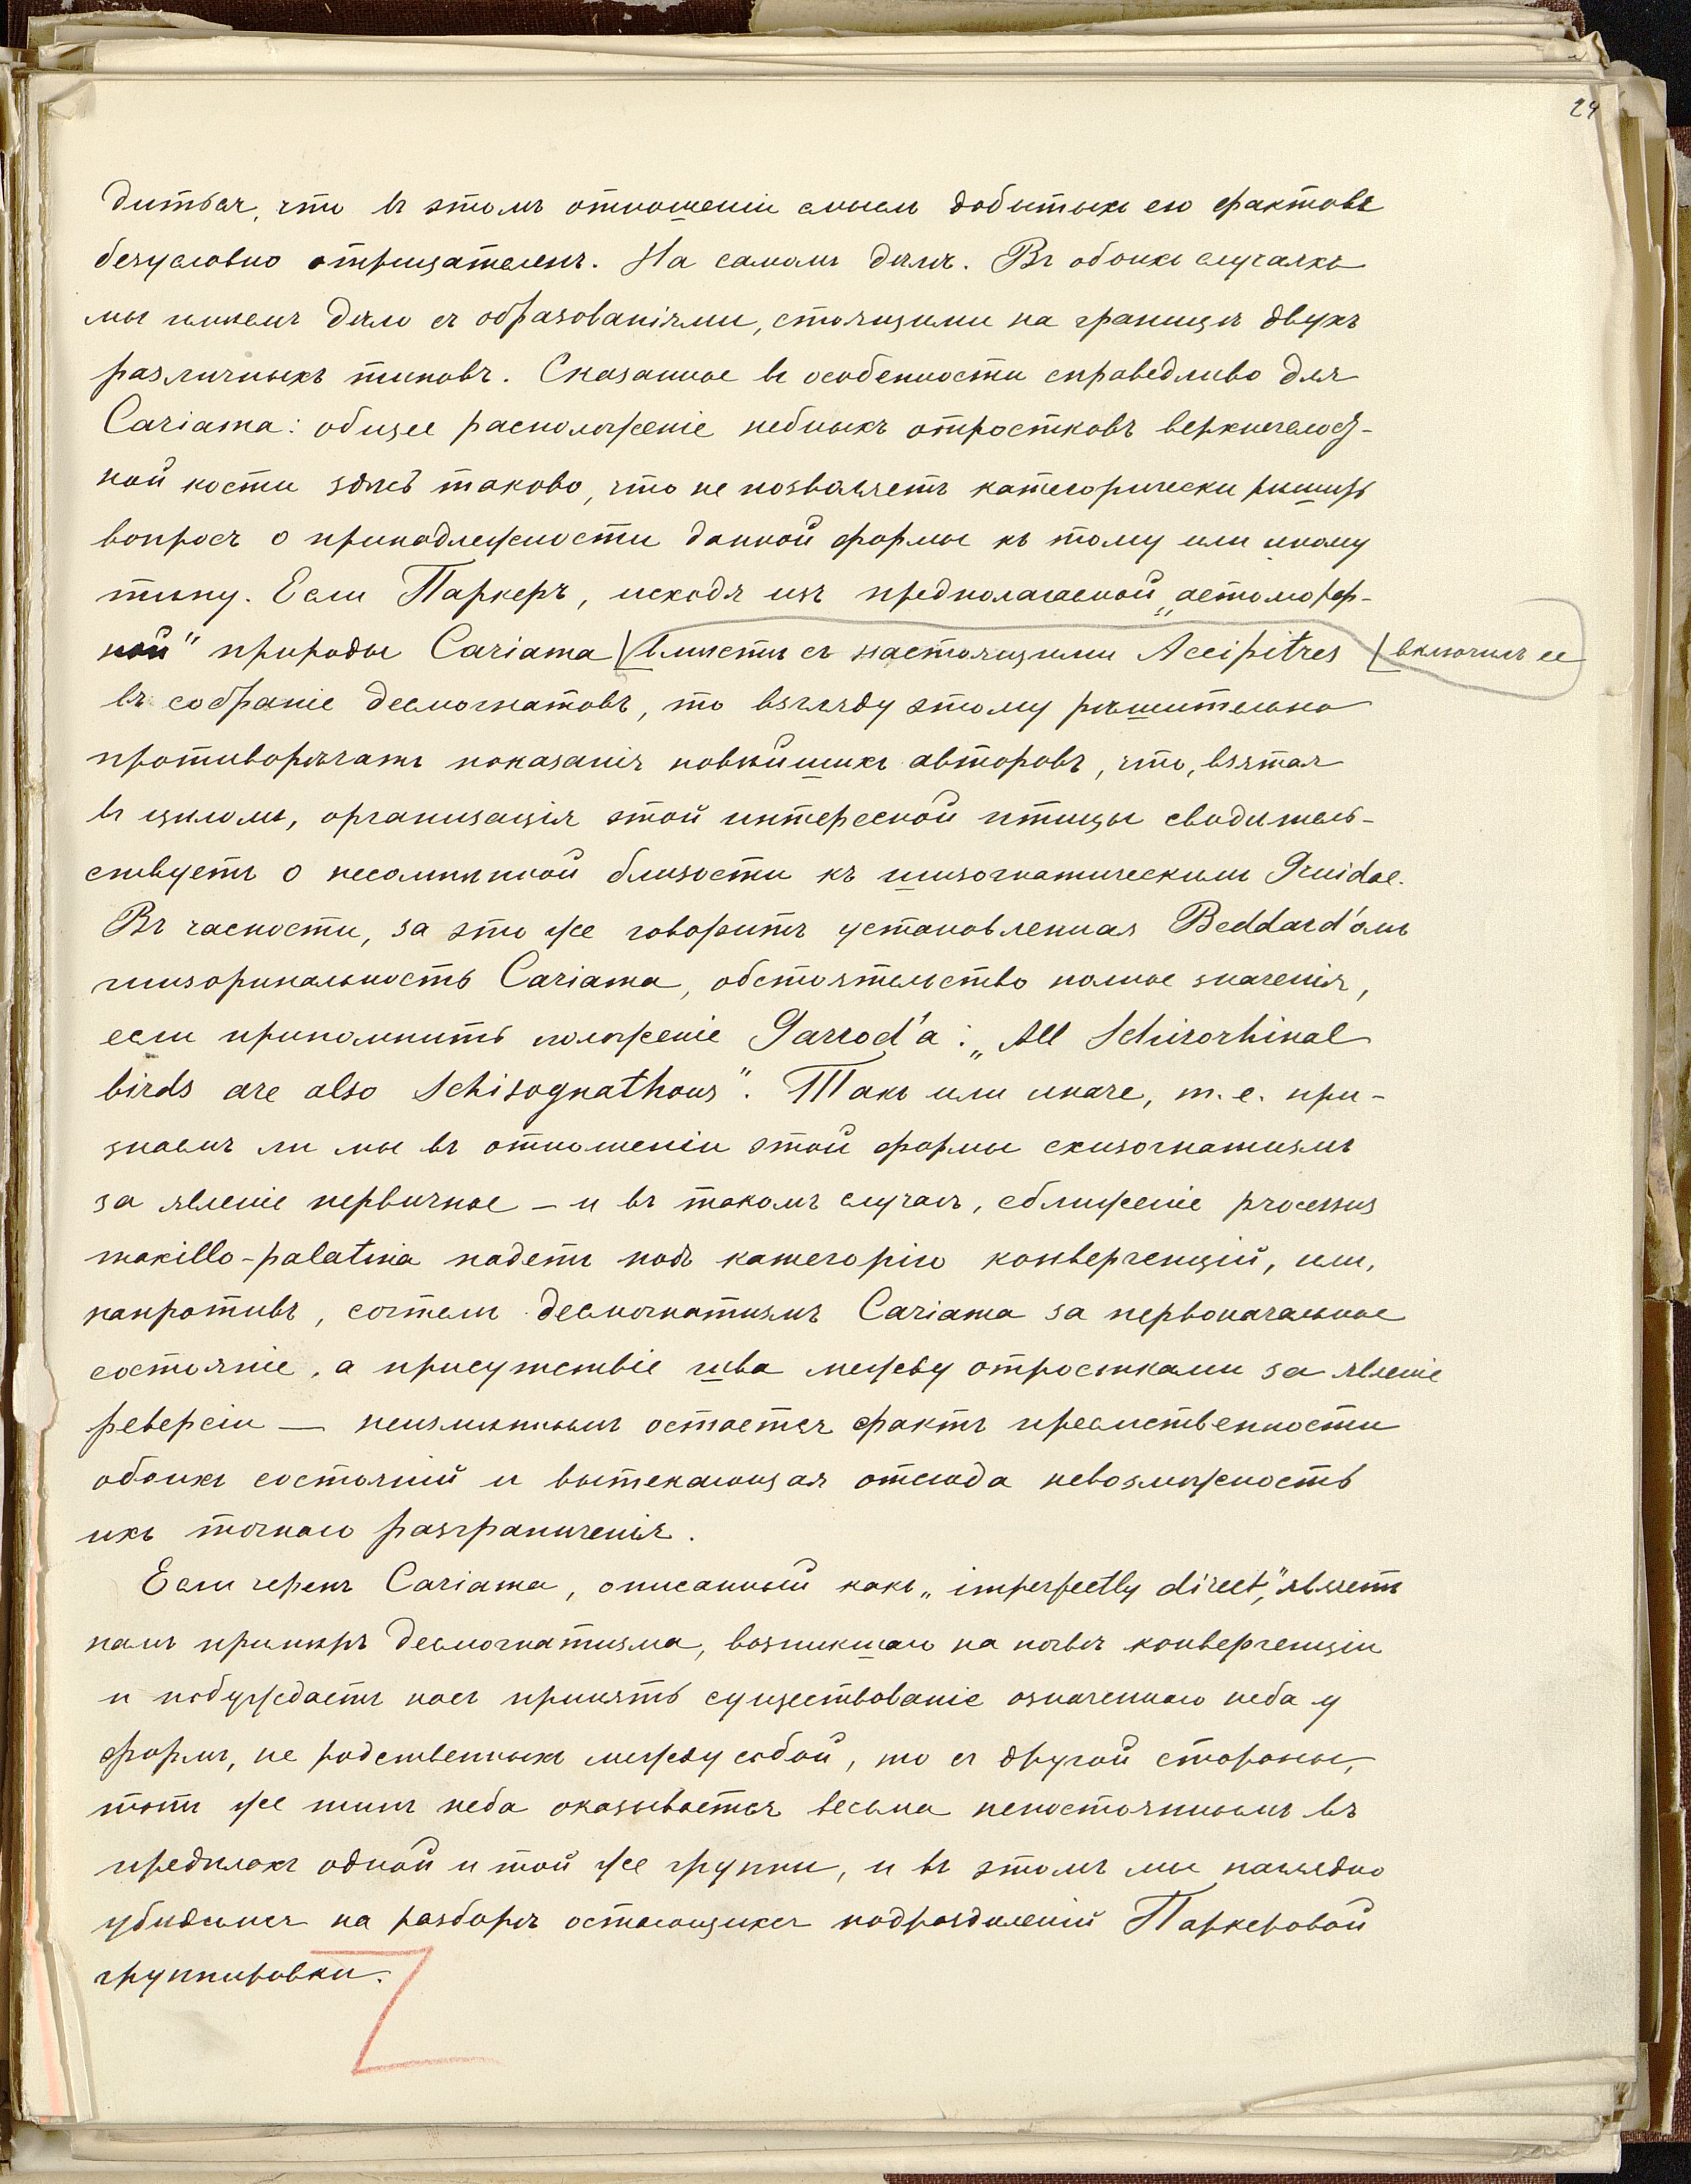 24
диться, что въ этомъ отношеніи смыслъ добытыхъ ею фактовъ
безусловно отрицателенъ. На самомъ дѣлѣ. Въ обоихъ случаяхъ
мы имѣемъ дѣло съ образованіями, стоящими на границѣ двухъ
различныхъ типовъ. Сказанное въ особенности справедливо для
Cariama: общее расположеніе небныхъ отростковъ верхнечелюст-
ной кости здѣсь таково, что не позволяетъ категорически рѣшить
вопросъ о принадлежности данной формы къ тому или иному
типу. Если Паркеръ, исходя изъ предполагаемой „аетоморф-
ной" природы Cariama вмѣстѣ съ настоящими Accipitres включилъ ее
въ собраніе десмогнатовъ, то взгляду этому рѣшительно
противорѣчатъ показанія новѣйшихъ авторовъ, что, взятая
въ цѣломъ, организація этой интересной птицы свидѣтель-
ствуетъ о несомнѣнной близости къ шизогнатическимъ Gruidae.
Въ часности, за это же говоритъ установленная Beddard'омъ
шизоринальность Cariama, обстоятельство полное значенія,
если припомнить положеніе Garrod'a: „All Schizorhinal
birds are also Schizognathous". Такъ или иначе, т. е. при-
знаемъ ли мы въ отношеніи этой формы схизогнатизмъ
за явленіе первичное – и въ такомъ случаѣ, сближеніе processus
maxillo-palatina падетъ подъ категорію конвергенцій, или,
напротивъ, сочтемъ десмогнатизмъ Cariama за первоначальное
состояніе, а присутствіе шва между отростками за явленіе
реверсіи — неизмѣннымъ остается фактъ преемственности
обоихъ состояній и вытекающая отсюда невозможность
ихъ точнаго разграниченія.
Если черепъ Cariama, описанный какъ „imperfectly direct", являетъ
намъ примѣръ десмогнатизма, возникшаго на почвѣ конвергенціи
и побуждаетъ насъ принять существованіе означеннаго неба у
формъ, не родственныхъ между собой, то съ другой стороны,
тотъ же типъ неба оказывается весьма непостояннымъ въ
предѣлахъ одной и той же группы, и въ этомъ мы наглядно
убѣдимся на разборѣ остающихся подраздѣленій Паркеровой
группировки.